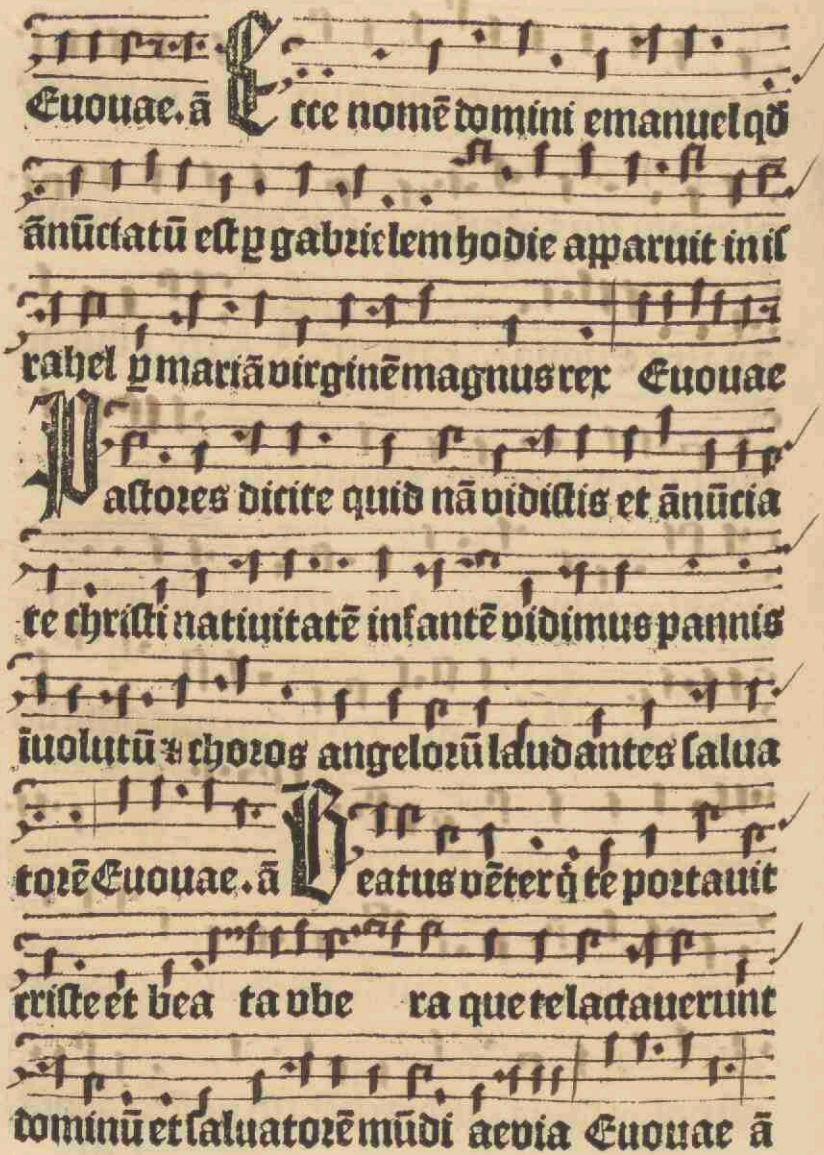 Euouae. ā Ecce nomē domini emanuel qđ
ānūciatū est ꝑ gabrielem hodie apparuit in is
rahel ꝑ mariā virginē magnus rex Euouae
Pastores dicite quid nā vidistis et ānūcia
te christi natiuitatē infantē vidimus pannis
īuolutū ⁊ choros angelorū laudantes salua
torē Euouae. ā Beatus vēter q̄ te portauit
criste et bea ta vbe ra que te lactauerunt
dominū et saluatorē mūdi aevia Euouae ā